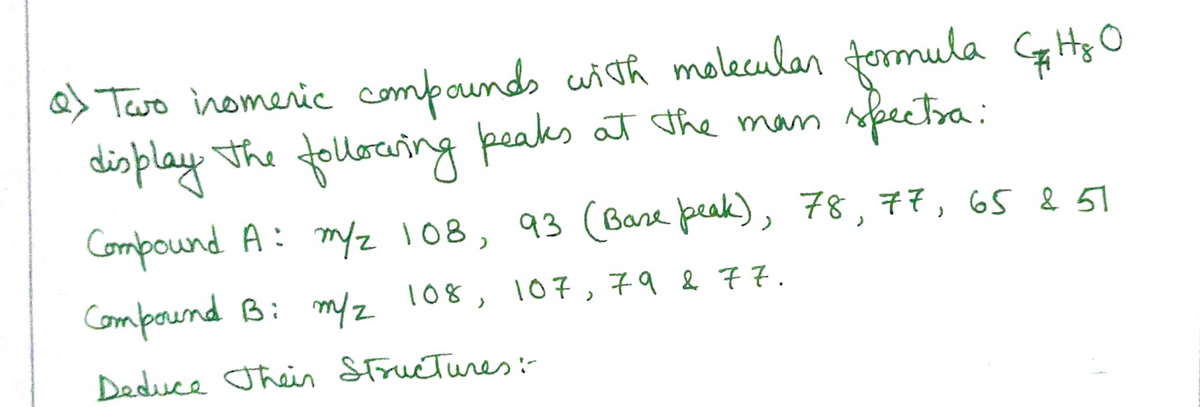 Q) Two isomeric compounds with molecular formula C7H8O
display the following peaks at the mass spectra:
Compound A: m/z 108, 93 (Base peak), 78, 77, 65 & 51
Compound B: m/z 108, 107, 79 & 77.
Deduce their structures:-